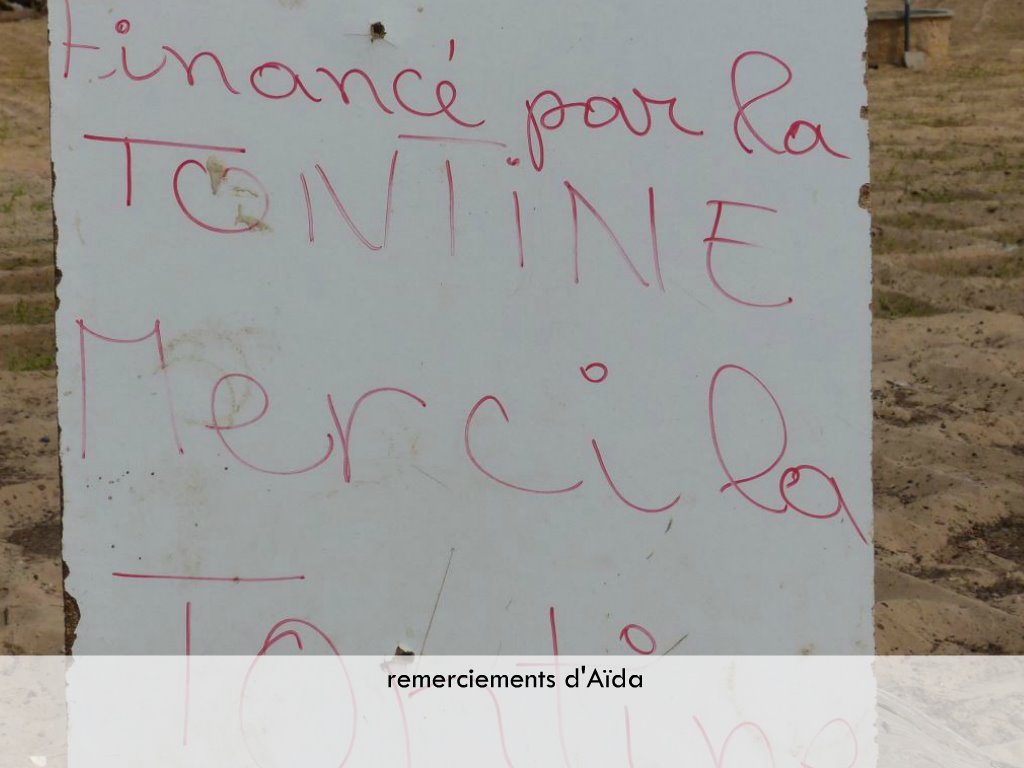 Financé par la
TONTiNE
Merci la
Tontine
remerciements d'Aïda